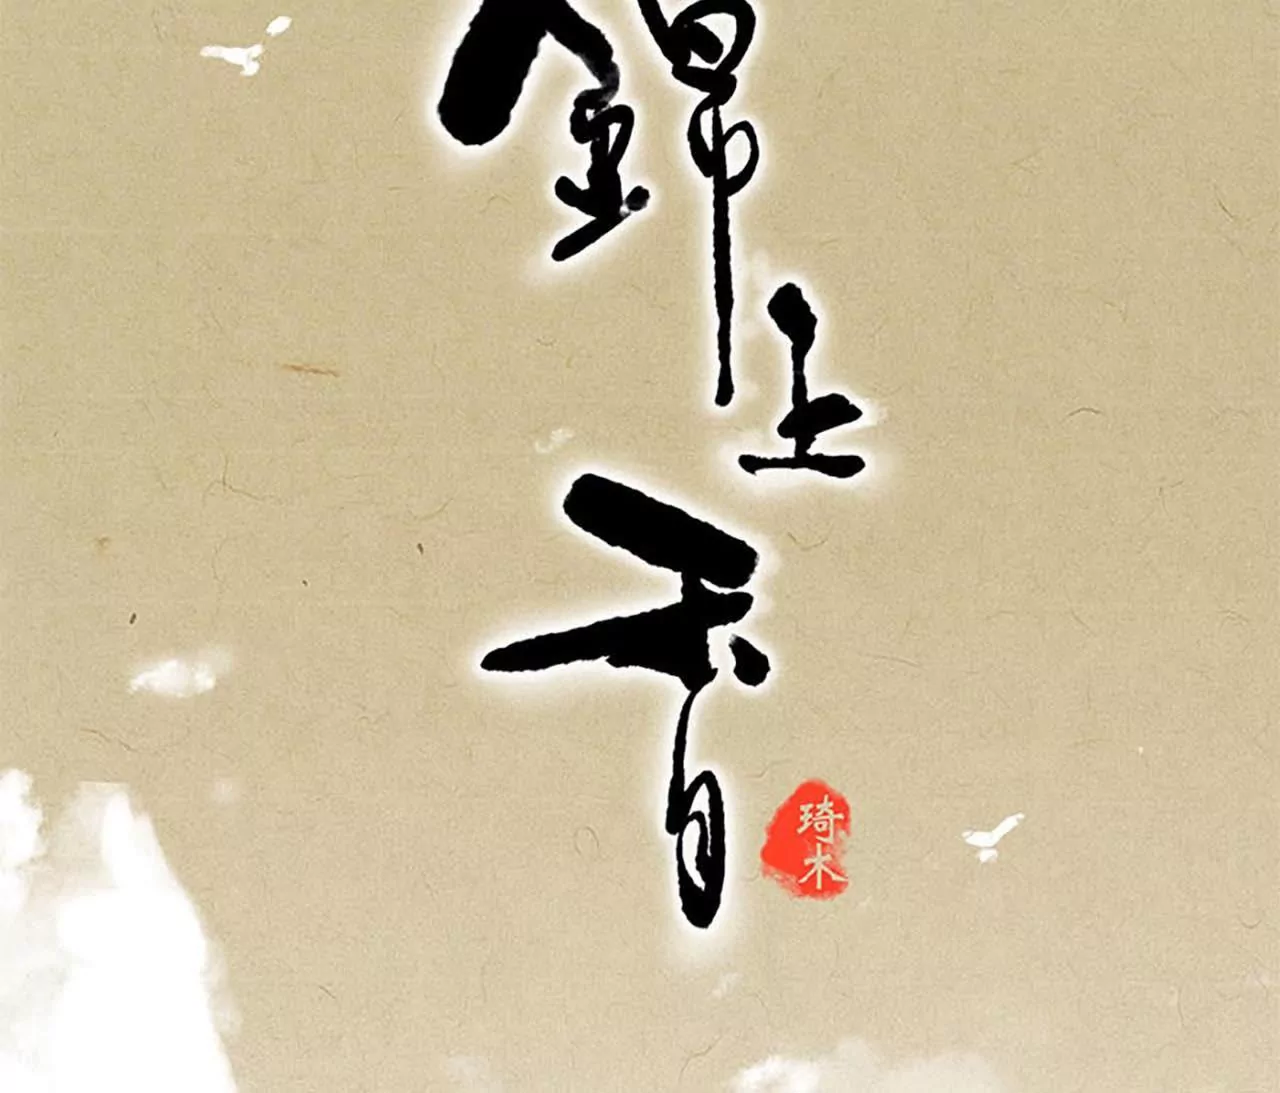 錦
上
香
琦木